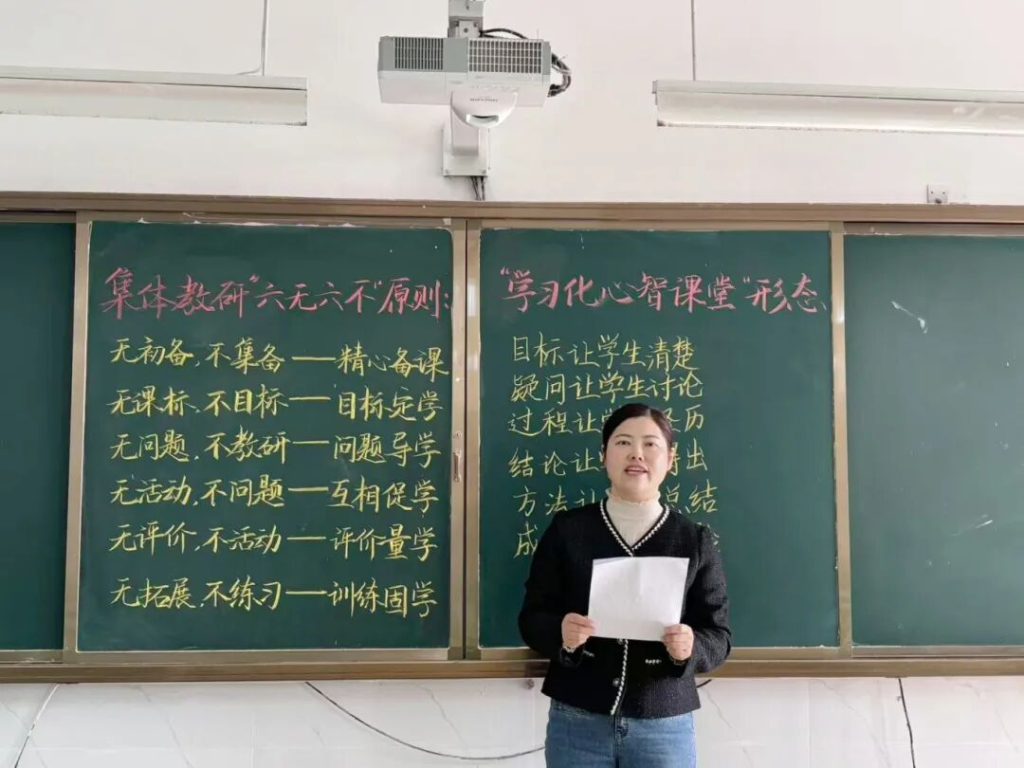 集体教研"六无六不"原则:
无初备、不集备——精心备课
无课标、不目标——目标定学
无问题、不教研——问题导学
无活动、不问题——互相促学
无评价、不活动——评价量学
无拓展、不练习——训练固学
"学习化心智课堂"形态、
目标让学生清楚
疑问让学生讨论
过程让学 经历
结论让 得出
方法让 总结
成